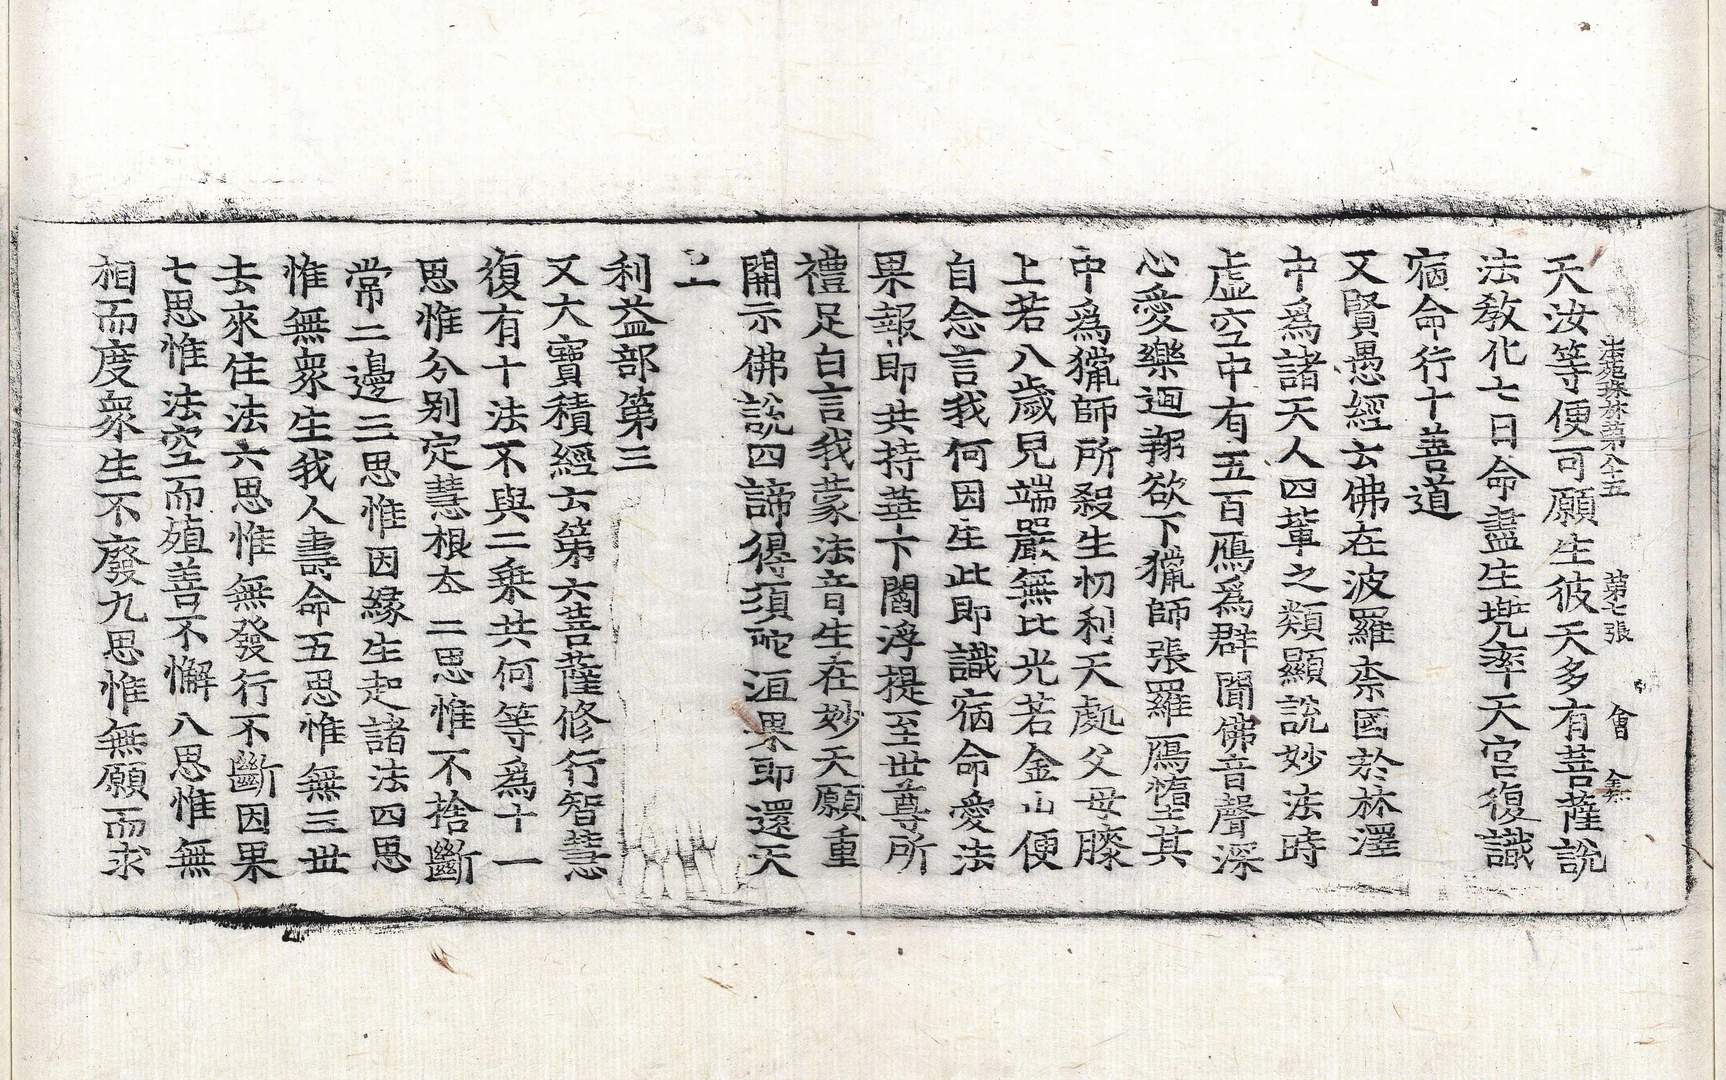 法苑珠林第八十五　第七張　會　無
天汝等便可願生彼天多有菩薩說
法敎化七日命盡生兠率天宮復識
宿命行十善道
又賢愚經云佛在波羅柰國於林澤
中爲諸天人四軰之類顯說妙法時
虛空中有五百鴈爲群聞佛音聲深
心愛樂迴翔欲下獵師張羅鴈墮其
中爲獵師所殺生忉利天處父母膝
上若八歲兒端嚴無比光若金山便
自念言我何因生此即識宿命愛法
果報即共持華下閻浮提至世尊所
禮足白言我蒙法音生在妙天願重
開示佛說四諦得須陀洹果即還天
上
利益部第三
又大寶積經云第六菩薩修行智慧
復有十法不與二乗共何等爲十一
思惟分別定慧根本二思惟不捨斷
常二邊三思惟因緣生起諸法四思
惟無衆生我人壽命五思惟無三世
去來住法六思惟無發行不斷因果
七思惟法空而殖善不懈八思惟無
相而度衆生不廢九思惟無願而求